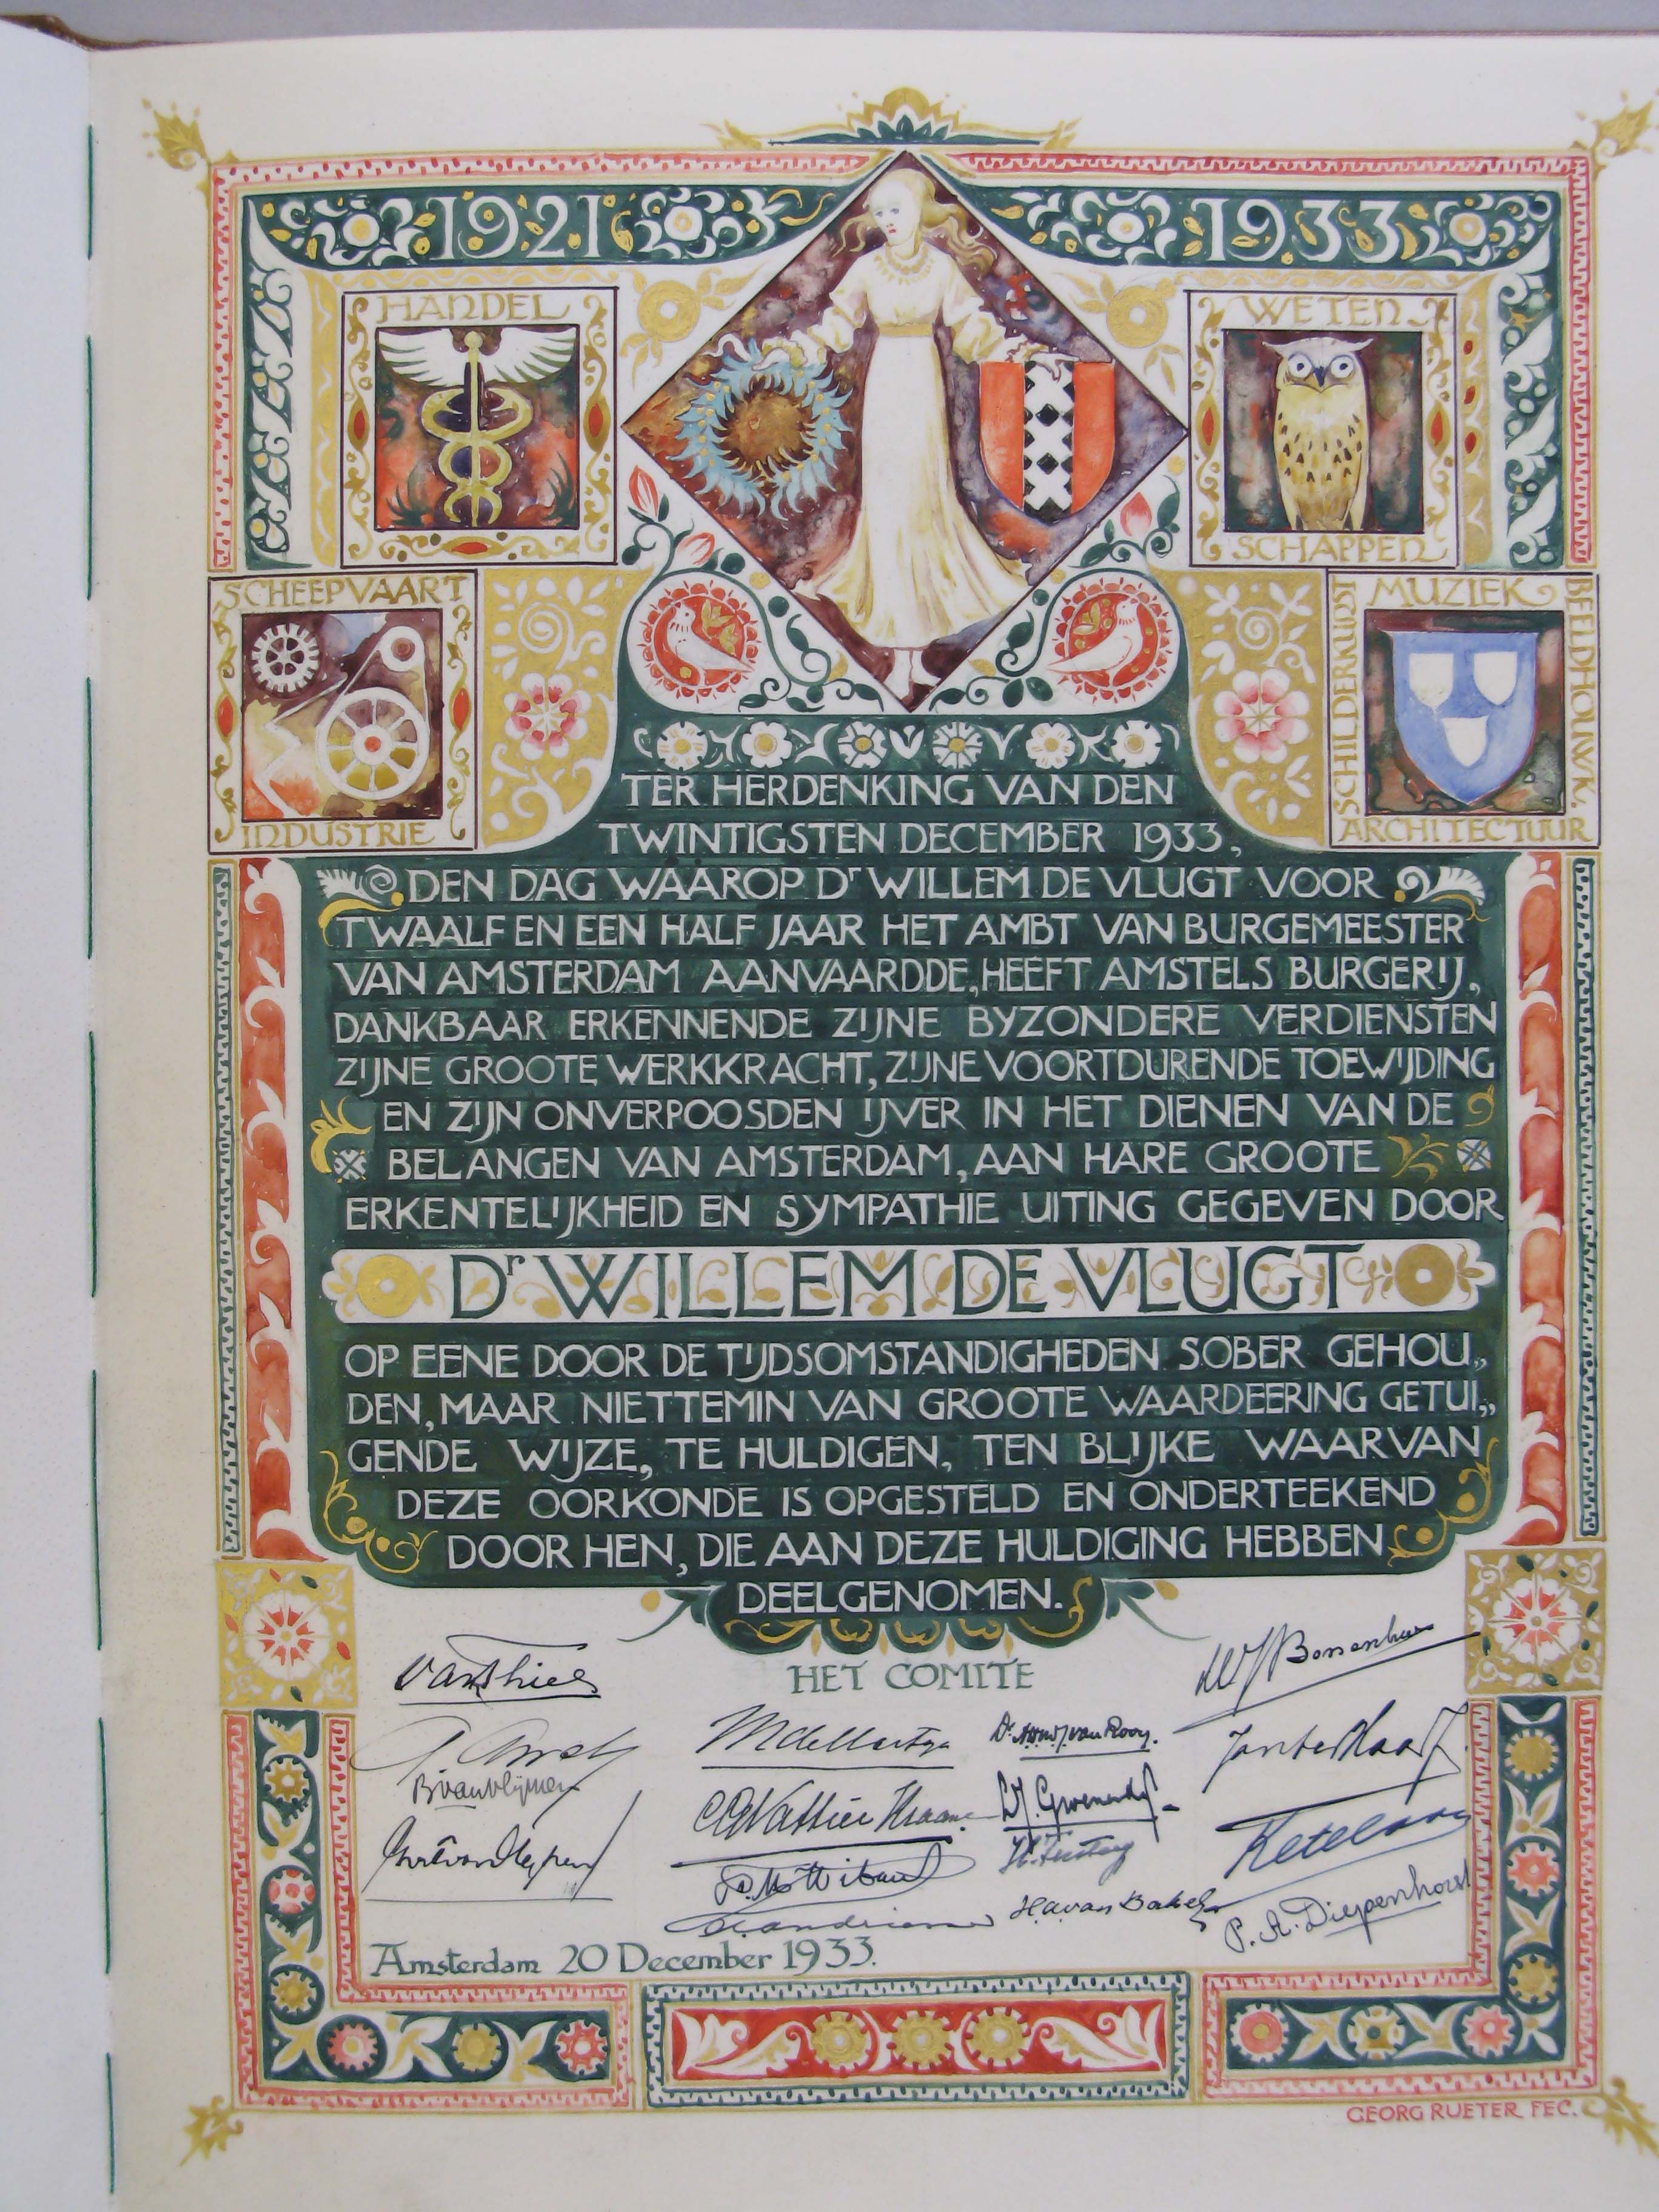 1921
1933
HANDEL
WETEN
SCHAPPEN
SCHEEPVAART
INDUSTRIE
MUZIEK
SCHILDERKUNST
BEELDHOUWK.
ARCHITECTUUR
TER HERDENKING VAN DEN
TWINTIGSTEN DECEMBER 1933,
DEN DAG WAAROP Dr WILLEM DE VLUGT VOOR
TWAALF EN EEN HALF JAAR HET AMBT VAN BURGEMEESTER
VAN AMSTERDAM AANVAARDDE, HEEFT AMSTELS BURGERIJ,
DANKBAAR ERKENNENDE ZIJNE BYZONDERE VERDIENSTEN
ZIJNE GROOTE WERKKRACHT, ZIJNE VOORTDURENDE TOEWIJDING
EN ZIJN ONVERPOOSDEN IJVER IN HET DIENEN VAN DE
BELANGEN VAN AMSTERDAM, AAN HARE GROOTE
ERKENTELIJKHEID EN SYMPATHIE UITING GEGEVEN DOOR
Dr WILLEM DE VLUGT
OP EENE DOOR DE TIJDSOMSTANDIGHEDEN SOBER GEHOU„
DEN, MAAR NIETTEMIN VAN GROOTE WAARDEERING GETUI„
GENDE WIJZE, TE HULDIGEN, TEN BLIJKE WAARVAN
DEZE OORKONDE IS OPGESTELD EN ONDERTEEKEND
DOOR HEN, DIE AAN DEZE HULDIGING HEBBEN
DEELGENOMEN.
HET COMITE
van Thiel
B. van Vlijmen
Dr. A.v.d. J. van Rooy.
Jan ter Haar
C A Wattier Kraane
H. A. van Bakel
Ketelaar
P. A. Diepenhorst
Amsterdam 20 December 1933.
GEORG RUETER FEC.